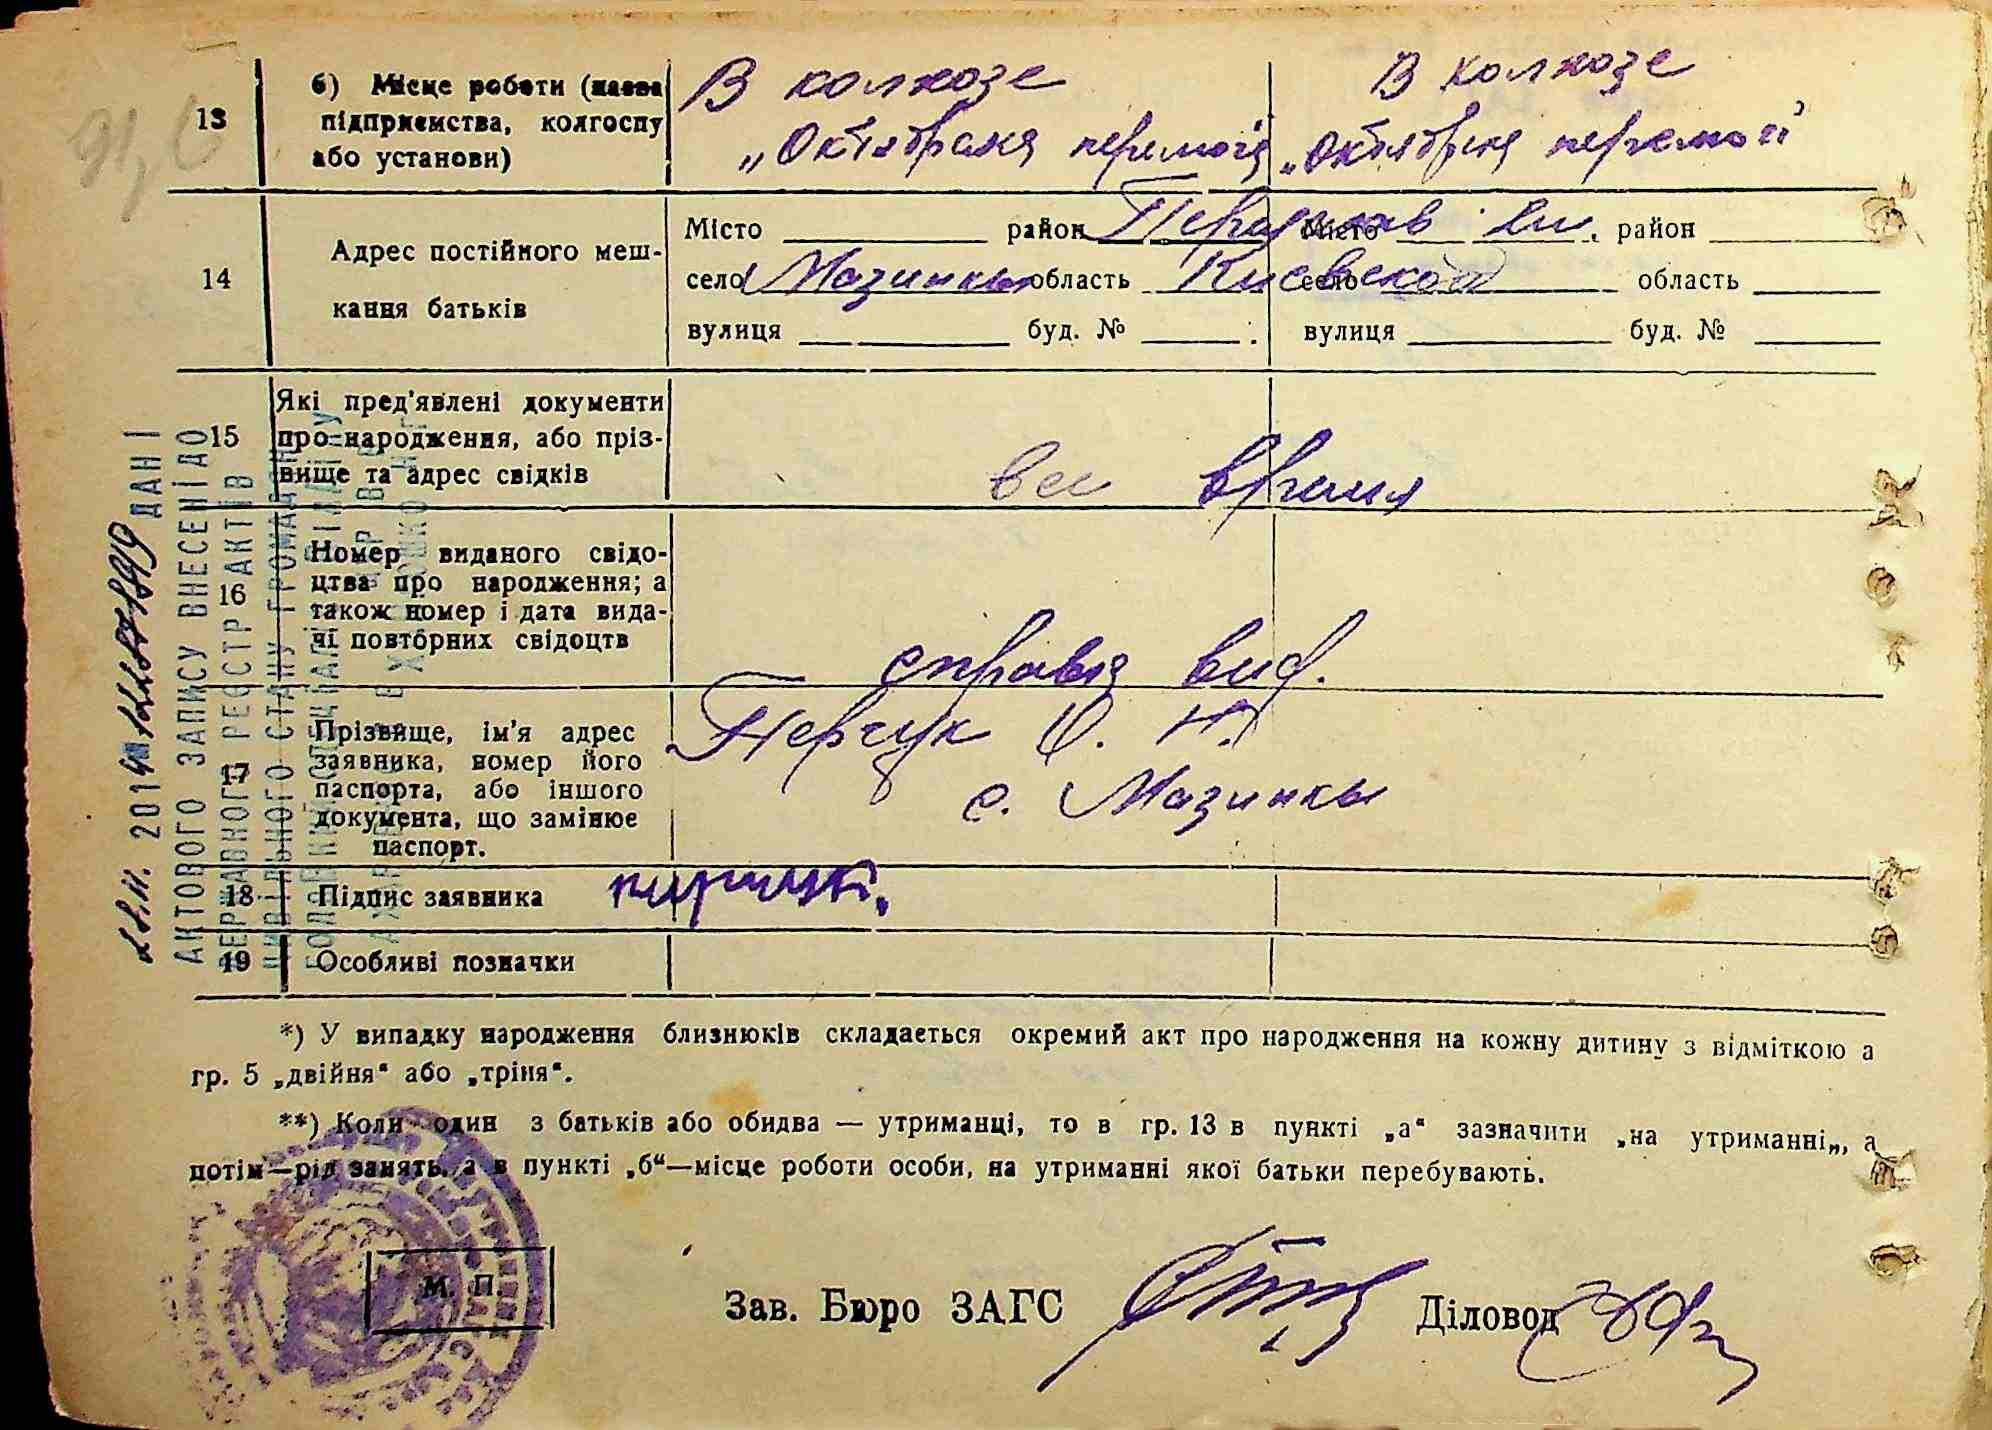 13
б) Місце роботи (назва
підприємства, колгоспу
або установи)
В колхозе
„Октябрська перемога
В колхозе
„Октябрська перемогі"
14
Адрес постійного меш-
кання батьків
Місто район Переяслав Хм.
село Мазинки область Киевской
вулиця буд. №
Місто район
село область
вулиця буд. №
15
Які пред'явлені документи
про народження, або пріз-
вище та адрес свідків
все время
16
Номер виданого свідо-
цтва про народження; а
також номер і дата вида-
чі повторних свідоцтв
справка
17
Прізвище, ім'я адрес
заявника, номер його
паспорта, або іншого
документа, що замінює
паспорт.
О. Н.
с. Мазинки
18
Підпис заявника
19
Особливі позначки
2014
ДАНІ
АКТОВОГО ЗАПИСУ ВНЕСЕНІ ДО
ДЕРЖАВНОГО РЕЄСТР АКТІВ
ЦИВІЛЬНОГО СТАНУ ГРОМАДЯН
*) У випадку народження близнюків складається окремий акт про народження на кожну дитину з відміткою а
гр. 5 „двійня“ або „тріня“.
**) Коли один з батьків або обидва — утриманці, то в гр. 13 в пункті „а“ зазначити „на утриманні„, а
потім—рід занять, а в пункті „б“—місце роботи особи, на утриманні якої батьки перебувають.
М. П.
Зав. Бюро ЗАГС
Діловод